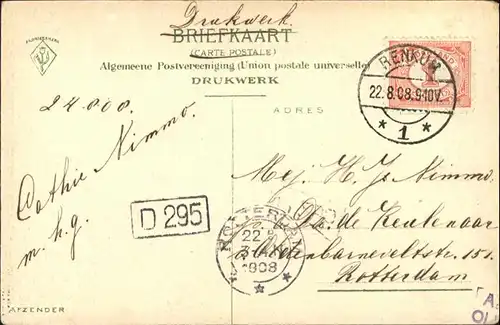 Drukwerk.
BRIEFKAART
(CARTE POSTALE)
Algemeene Postvereeniging (Union postale universelle)
DRUKWERK
RENKUM
22.8.08.9-10V.
* 1 *
1
ADRES
24.000.
Cathie Nimmo.
m. h. g.
D 295
Mej. H. Js. Nimmo.
de Keukenaar
Oldenbarneveltstr. 151.
Rotterdam
ROTTERDAM
22 8
1908
AFZENDER